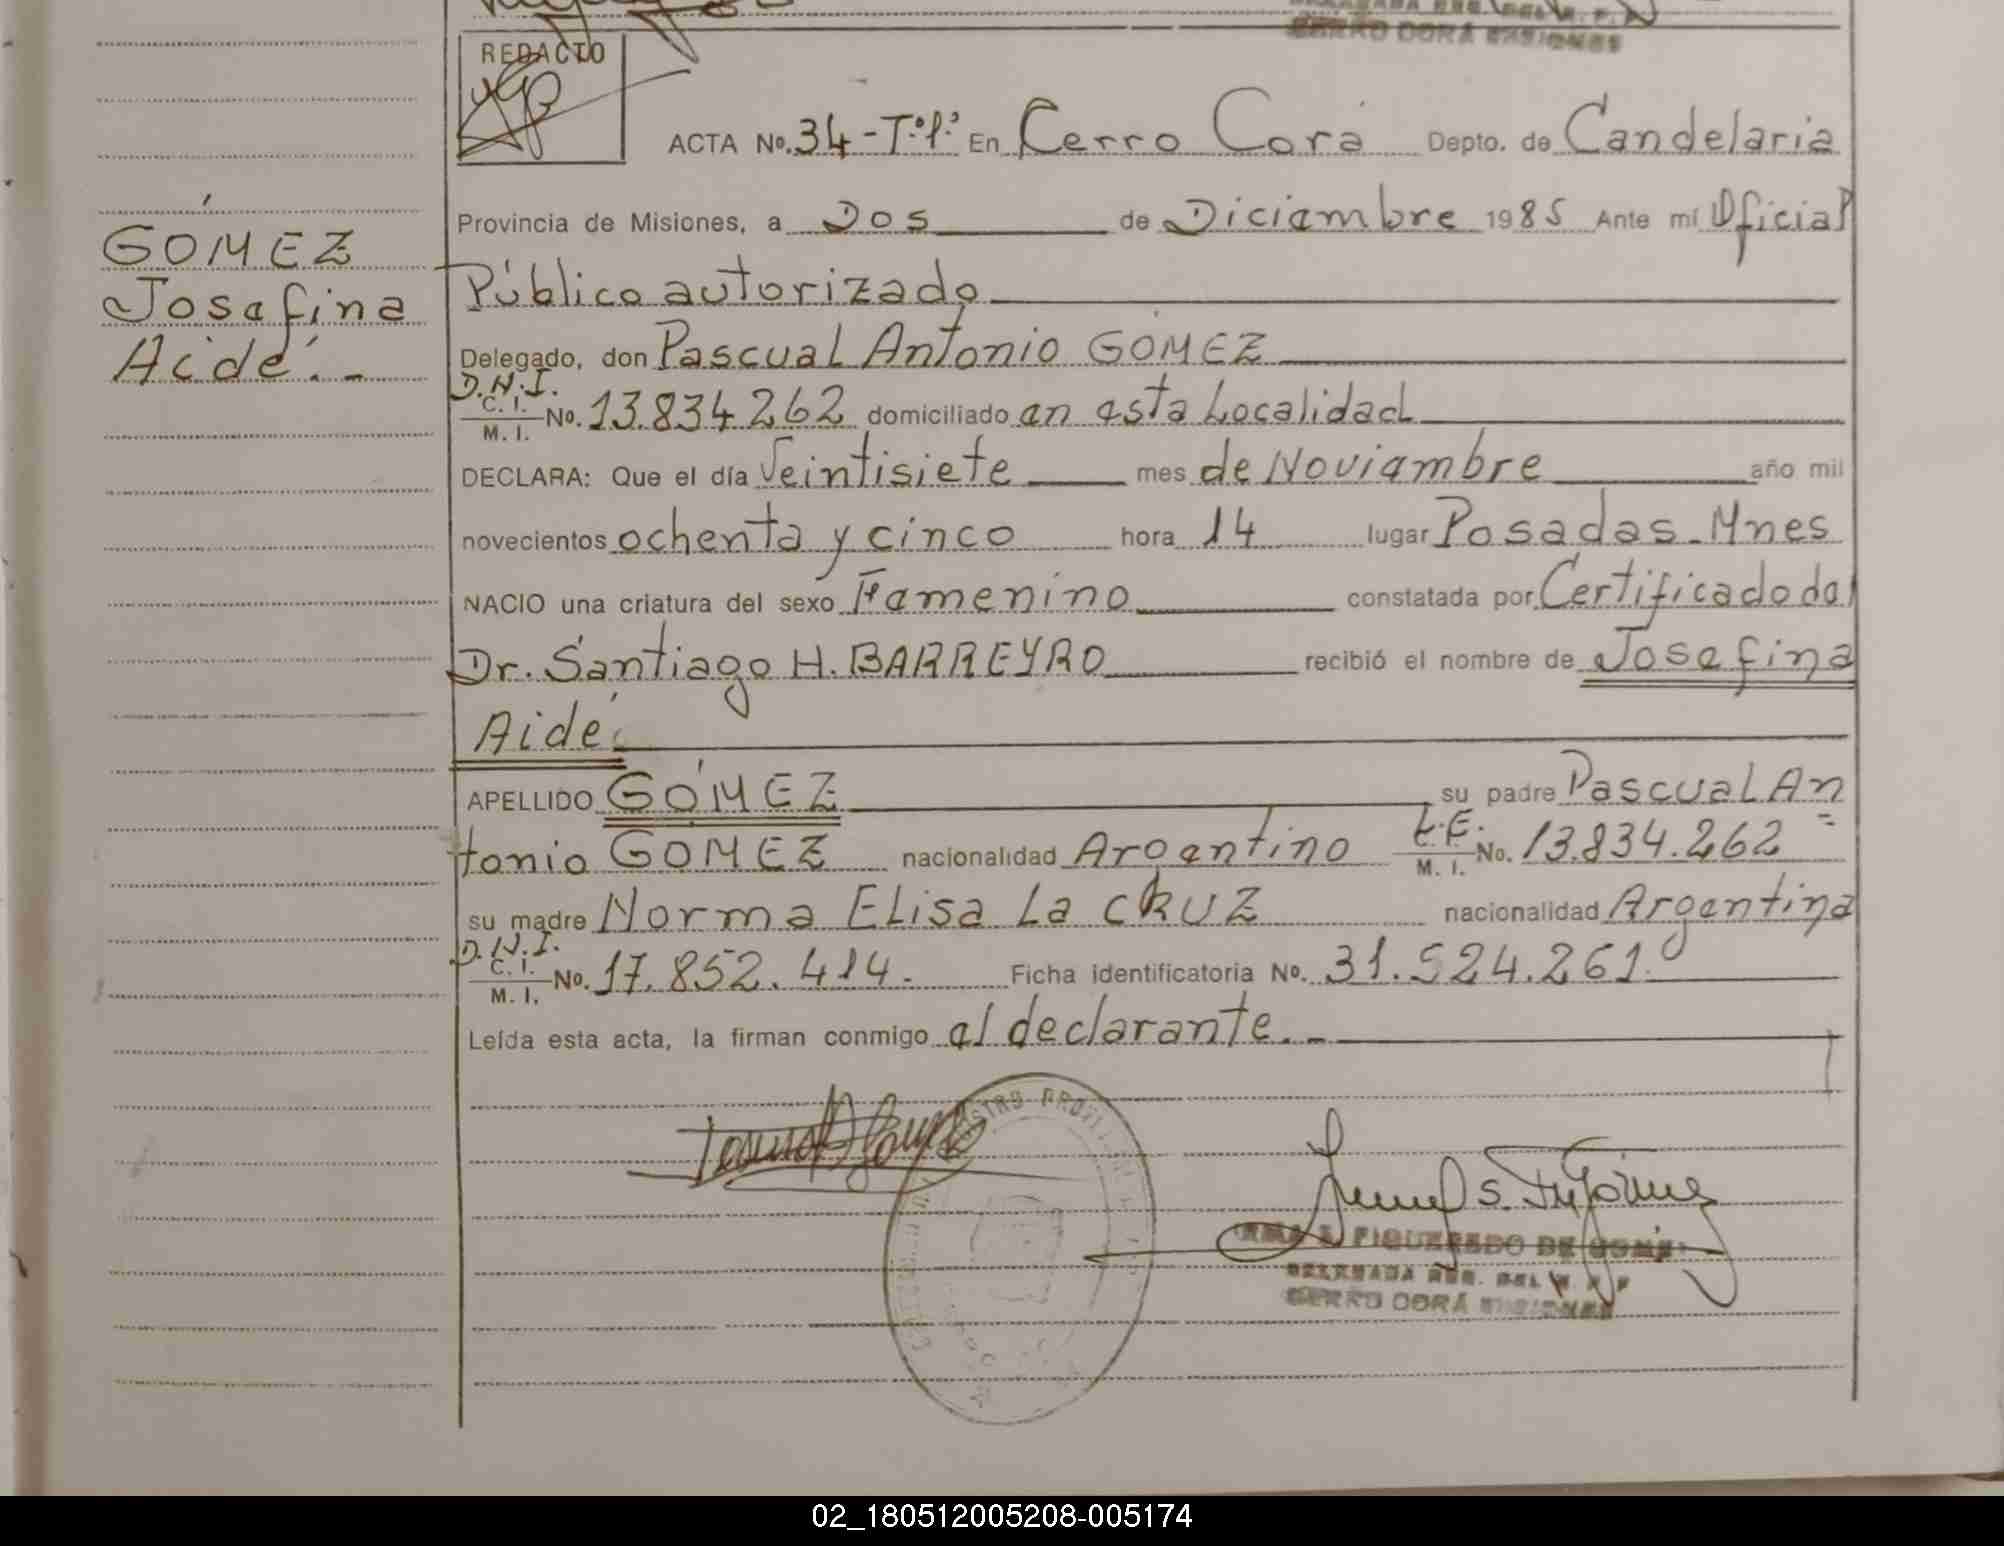 CERRO CORÁ MISIONES
REDACTO
ACTA No. 34-T:1º En Cerro Corá Depto. de Candelaria
Provincia de Misiones, a Dos de Diciembre 1985 Ante mí Oficial
Público autorizado
GÓMEZ
Josefina
Aidé.-
Delegado, don Pascual Antonio GOMEZ
D.N.I.
C. I.
M. I.
No. 13.834.262 domiciliado en esta Localidad
DECLARA: Que el día Veintisiete mes de Noviembre año mil
novecientos ochenta y cinco hora 14 lugar Posadas-Mnes
NACIO una criatura del sexo Femenino constatada por Certificado del
Dr. Santiago H. BARREYRO recibió el nombre de Josefina
Aidé
APELLIDO GÓMEZ su padre Pascual An
tonio GOMEZ nacionalidad Argentino L.E. M. I. No. 13.834.262
su madre Norma Elisa La CRUZ nacionalidad Argentina
D.N.I.
C. I.
M. I.
No. 17.852.414. Ficha identificatoria No. 31.524.261.
Leída esta acta, la firman conmigo el declarante.-
FIGUEREDO DE
CERRO CORÁ MISIONES
02_180512005208-005174